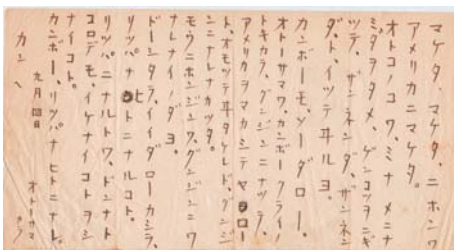 マケタ、マケタ、ニホンワ
アメリカニマケタ。
オトコノコワ、ミナメニナ
ミダヲタメ、ゲンコツヲニギ
ッテ、ザンネンダ、ザンネン
ダ、トイッテヰルヨ。
カンボーモ、ソーダロー。
オトーサマワ、カンボークライノ
トキカラ、グンジンニナッテ、
アメリカヲマカシテヤロー
ト、オモッテヰタケレド、グンジ
ンニナレナカッタ。
モウニホンジンワ、グンジンニワ
ナレナイノダヨ。
ドーシタラ、イイダローカシラ。
リッパナヒトニナルコト。
リッパニナルトワ、ドンナト
コロデモ、イケナイコトヲシ
ナイコト。
カンボー、リッパナヒトニナレ。
九月四日
オトーサマ
カラ
カンヘ